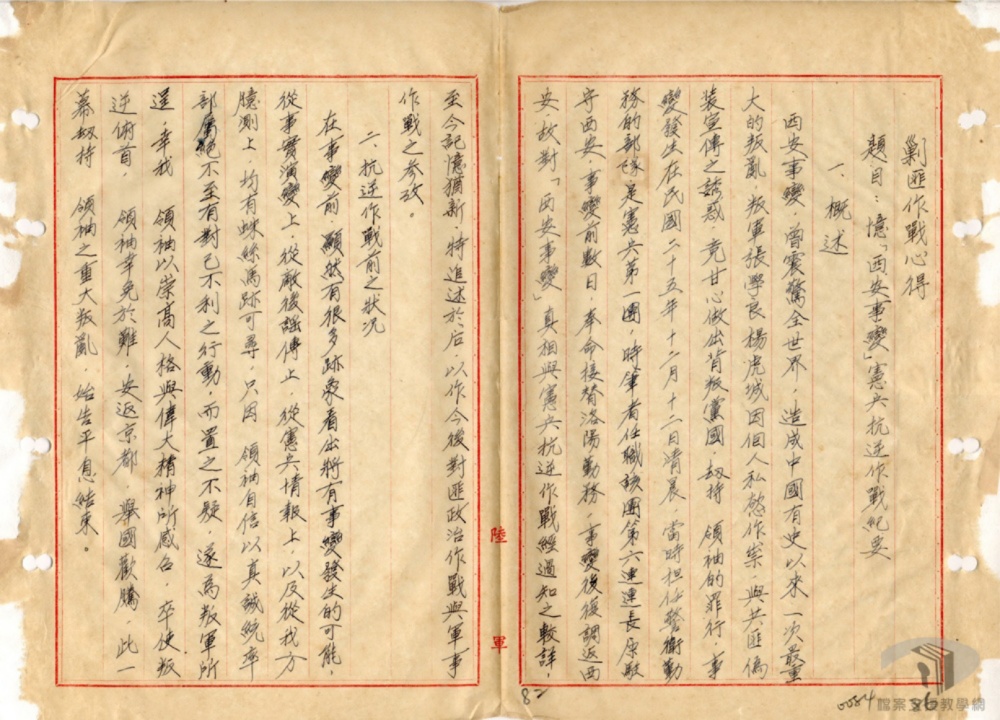 剿匪作戰心得
題目：憶「西安事變」憲兵抗逆作戰紀要
一、概述
西安事變，曾震驚全世界，造成中國有史以來一次最重
大的叛亂，叛軍張學良楊虎城因個人私慾作祟，與共匪偽
裝宣傳之誘惑，竟甘心做出背叛黨國，劫持　領袖的罪行，事
變發生在民國二十五年十二月十二日清晨，當時担任警衛勤
務的部隊是憲兵第一團，時筆者任職該團第六連連長原駐
守西安，事變前數日，奉命接替洛陽勤務，事變後復調返西
安，故對「西安事變」真相與憲兵抗逆作戰經過知之較詳，
至今記憶猶新，特追述於后，以作今後對匪政治作戰與軍事
作戰之參攷。
二、抗逆作戰前之狀况
在事變前，顯然有很多跡象看出將有事變發生的可能，
從事實演變上，從敵後謠傳上，從憲兵情報上，以及從我方
臆測上，均有蛛絲馬跡可尋，只因　領袖自信以真誠統率
部屬絕不至有對己不利之行動，而置之不疑，遂為叛軍所
逞，幸我　領袖以崇高人格與偉大精神所感召，卒使叛
逆俯首，　領袖幸免於難，安返京都，舉國歡騰，此一
幕劫持　領袖之重大叛亂，始告平息結束。
陸　軍
82
0084
86
檔案　教學網